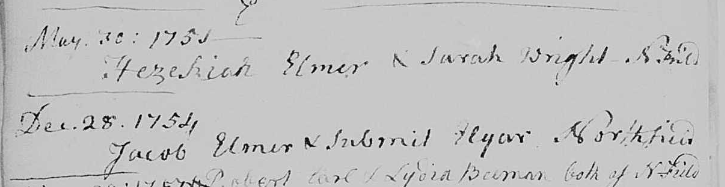 May. 30: 1751
Hezekiah Elmer & Sarah Wright - N Field
Dec. 28. 1754
Jacob Elmer & Submit Hyar Northfield
Robert Earl & Lydia Beeman both of N Field